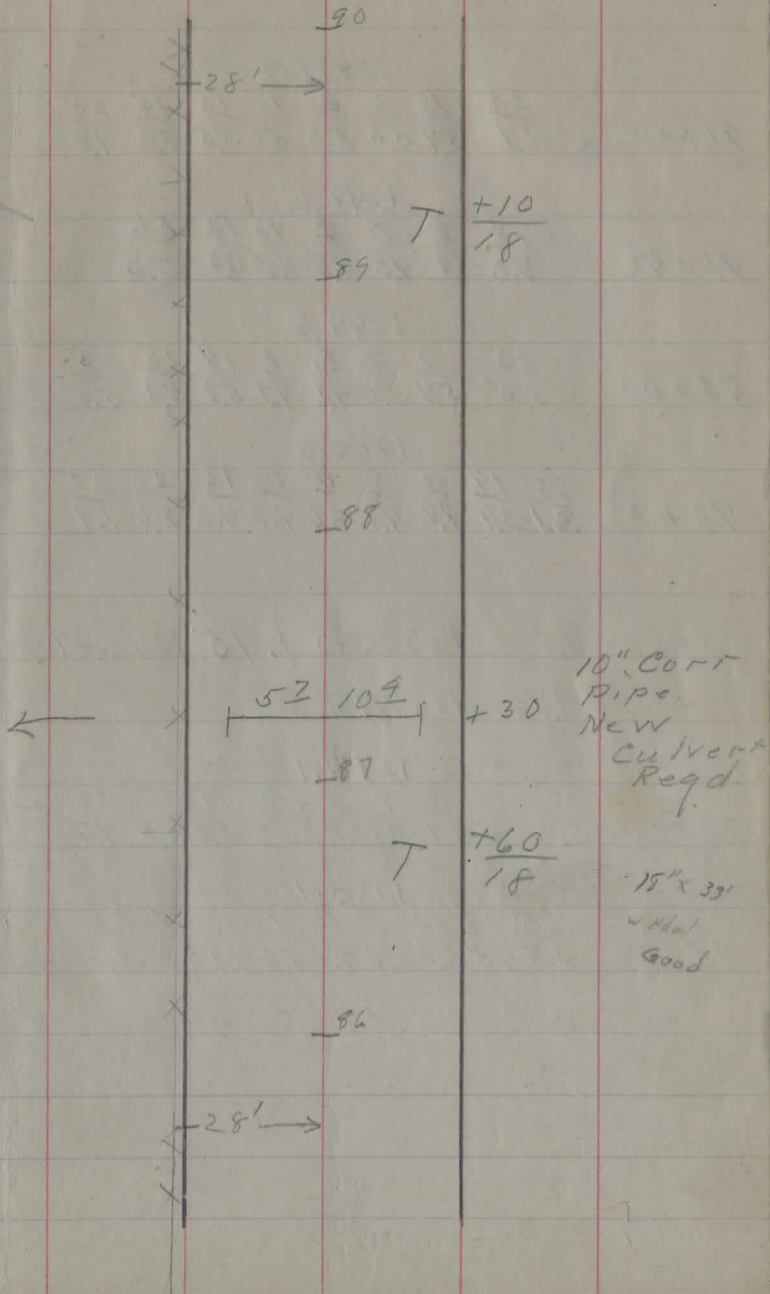 90
28'
T +10
18
89
88
5 7 10 4 +30
10" Corr
Pipe.
New
Culvert
Reqd.
87
T +60
18
15" x 33'
Good
86
28'